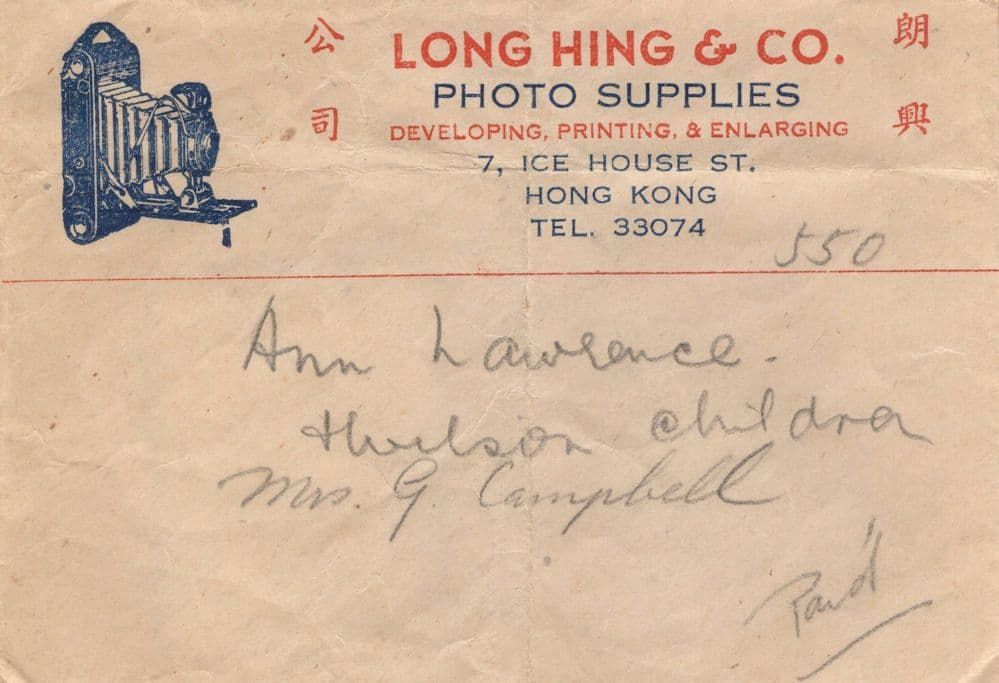 朗興
公司
LONG HING & CO.
PHOTO SUPPLIES
DEVELOPING, PRINTING, & ENLARGING
7, ICE HOUSE ST.
HONG KONG
TEL. 33074
550
Ann Lawrence.
children
Mrs. G. Campbell
Paid